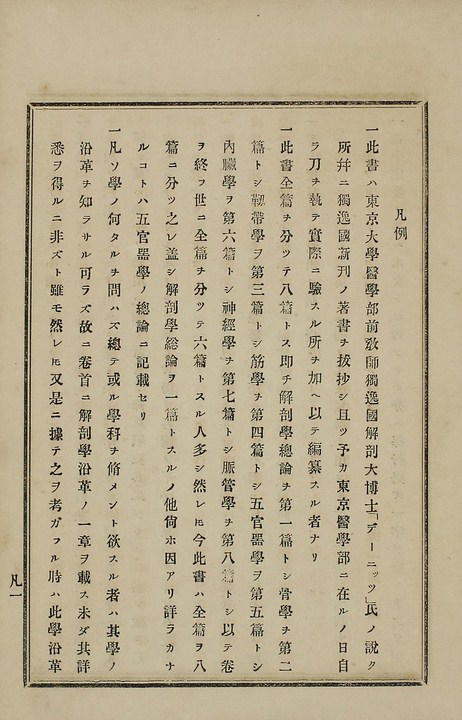 凡例
一此書ハ東京大學醫學部前敎師獨逸國解剖大博士「デーニッツ」氏ノ說ク
所幷ニ獨逸國新刊ノ著書ヲ拔抄シ且ツ予カ東京醫學部ニ在ルノ日自
ラ刀ヲ執テ實際ニ驗スル所ヲ加ヘ以テ編纂スル者ナリ
一此書全篇ヲ分ツテ八篇トス卽チ解剖學總論ヲ第一篇トシ骨學ヲ第二
篇トシ靱帶學ヲ第三篇トシ筋學ヲ第四篇トシ五官器學ヲ第五篇トシ
內臟學ヲ第六篇トシ神經學ヲ第七篇トシ脈管學ヲ第八篇トシ以テ卷
ヲ終フ世ニ全篇ヲ分ツテ六篇トスル人多シ然レ𪜈今此書ハ全篇ヲ八
篇ニ分ツ之レ盖シ解剖學總論ヲ一篇トスルノ他尙ホ因アリ詳ラカナ
ルコトハ五官器學ノ總論ニ記載セリ
一凡ソ學ノ何タルヲ問ハズ總テ或ル學科ヲ脩メント欲スル者ハ其學ノ
沿革ヲ知ラサル可ラズ故ニ卷首ニ解剖學沿革ノ一章ヲ載ス未ダ其詳
悉ヲ得ルニ非ズト雖モ然レ𪜈又是ニ據テ之ヲ考ガフル時ハ此學沿革
凡一